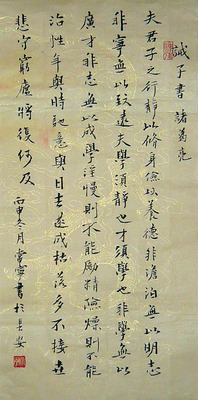 誡子書 諸葛亮
夫君子之行靜以修身儉以養德非澹泊無以明志
非寧無以致遠夫學須靜也才須學也非學無以
廣才非志無以成學淫慢則不能勵精險燥則不能
治性年與時馳意與日去遂成枯落多不接世
悲守窮廬將復何及 丙申冬月 寧書於長安